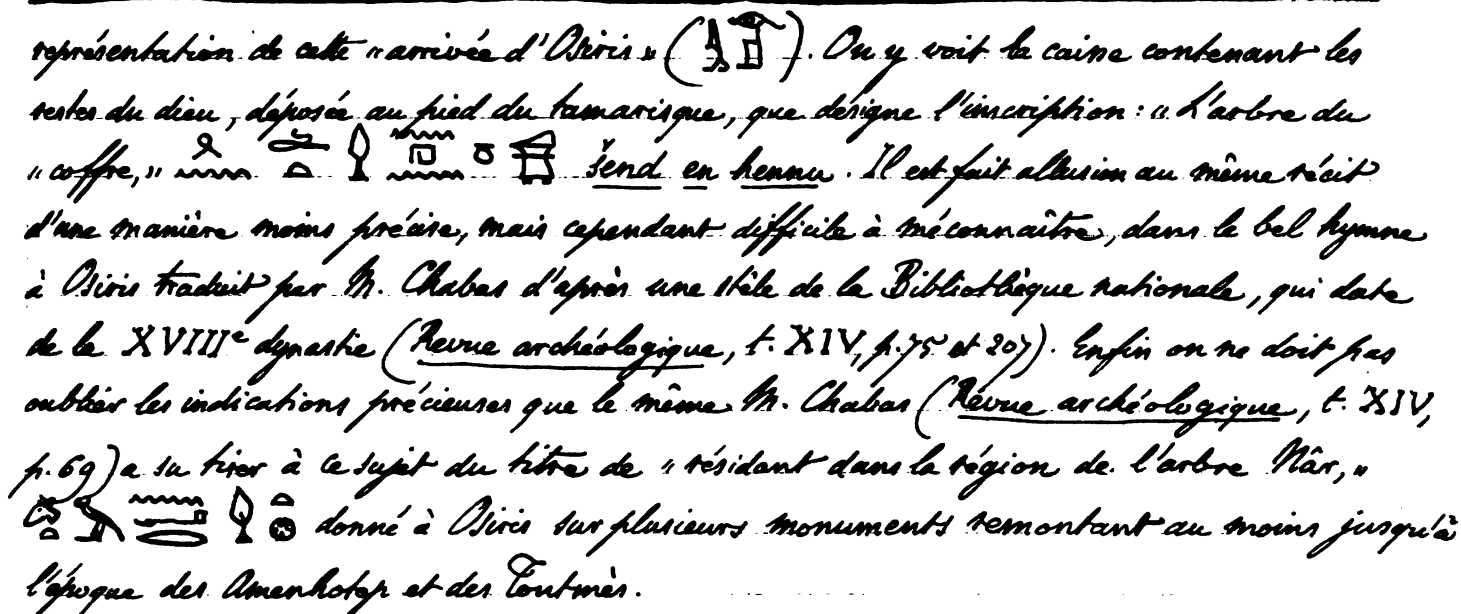 représentation de cette « arrivée d'Osiris » ( ). On y voit la caisse contenant les
restes du dieu, déposée au pied du tamarisque, que désigne l'inscription : « L'arbre du
« coffre, » šend en hennu. Il est fait allusion au même récit
d'une manière moins précise, mais cependant difficile à méconnaître, dans le bel hymne
à Osiris traduit par M. Chabas d'après une stèle de la Bibliothèque nationale, qui date
de la XVIIIe dynastie (Revue archéologique, t. XIV, p. 75 et 207). Enfin on ne doit pas
oublier les indications précieuses que le même M. Chabas (Revue archéologique, t. XIV,
p. 69) a su tirer à ce sujet du titre de « résidant dans la région de l'arbre Nâr, »
donné à Osiris sur plusieurs monuments remontant au moins jusqu'à
l'époque des Amenhotep et des Toutmès.